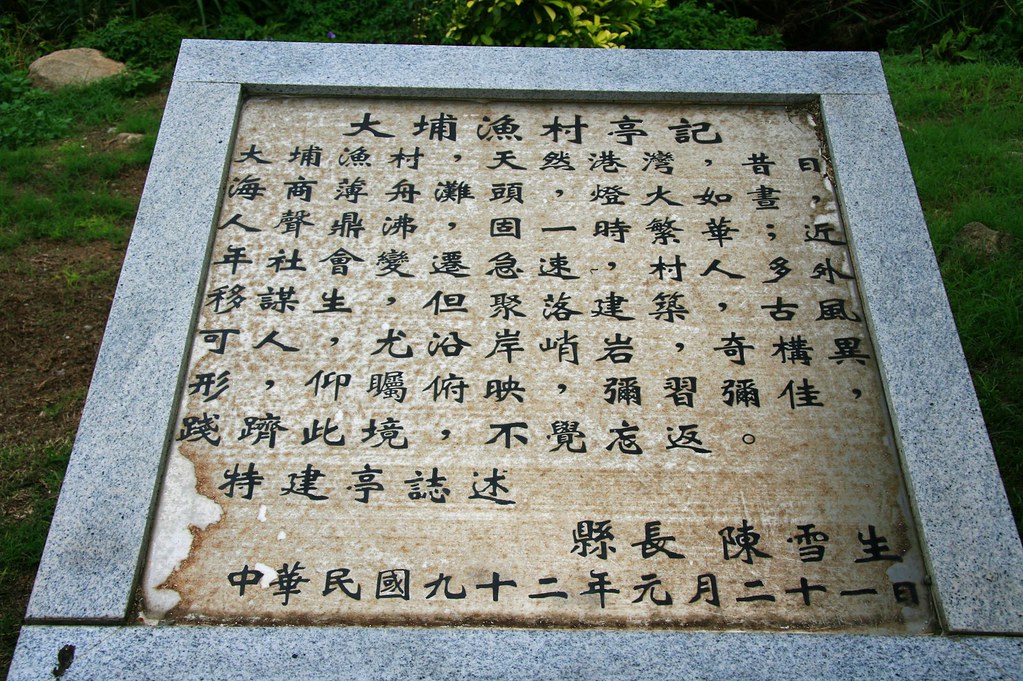 大埔漁村亭記
大埔漁村，天然港灣，昔日，
海商薄舟灘頭，燈火如晝；近
人聲鼎沸，固一時繁華；多外
年社會變遷急速，村人，古風
移謀生，但聚落建築，奇構異，
可人，尤沿岸峭岩，彌佳
形，仰矚俯映，彌習彌佳，
踐躋此境，不覺忘返。
特建亭誌述
縣長 陳雪生
中華民國九十二年元月二十一日